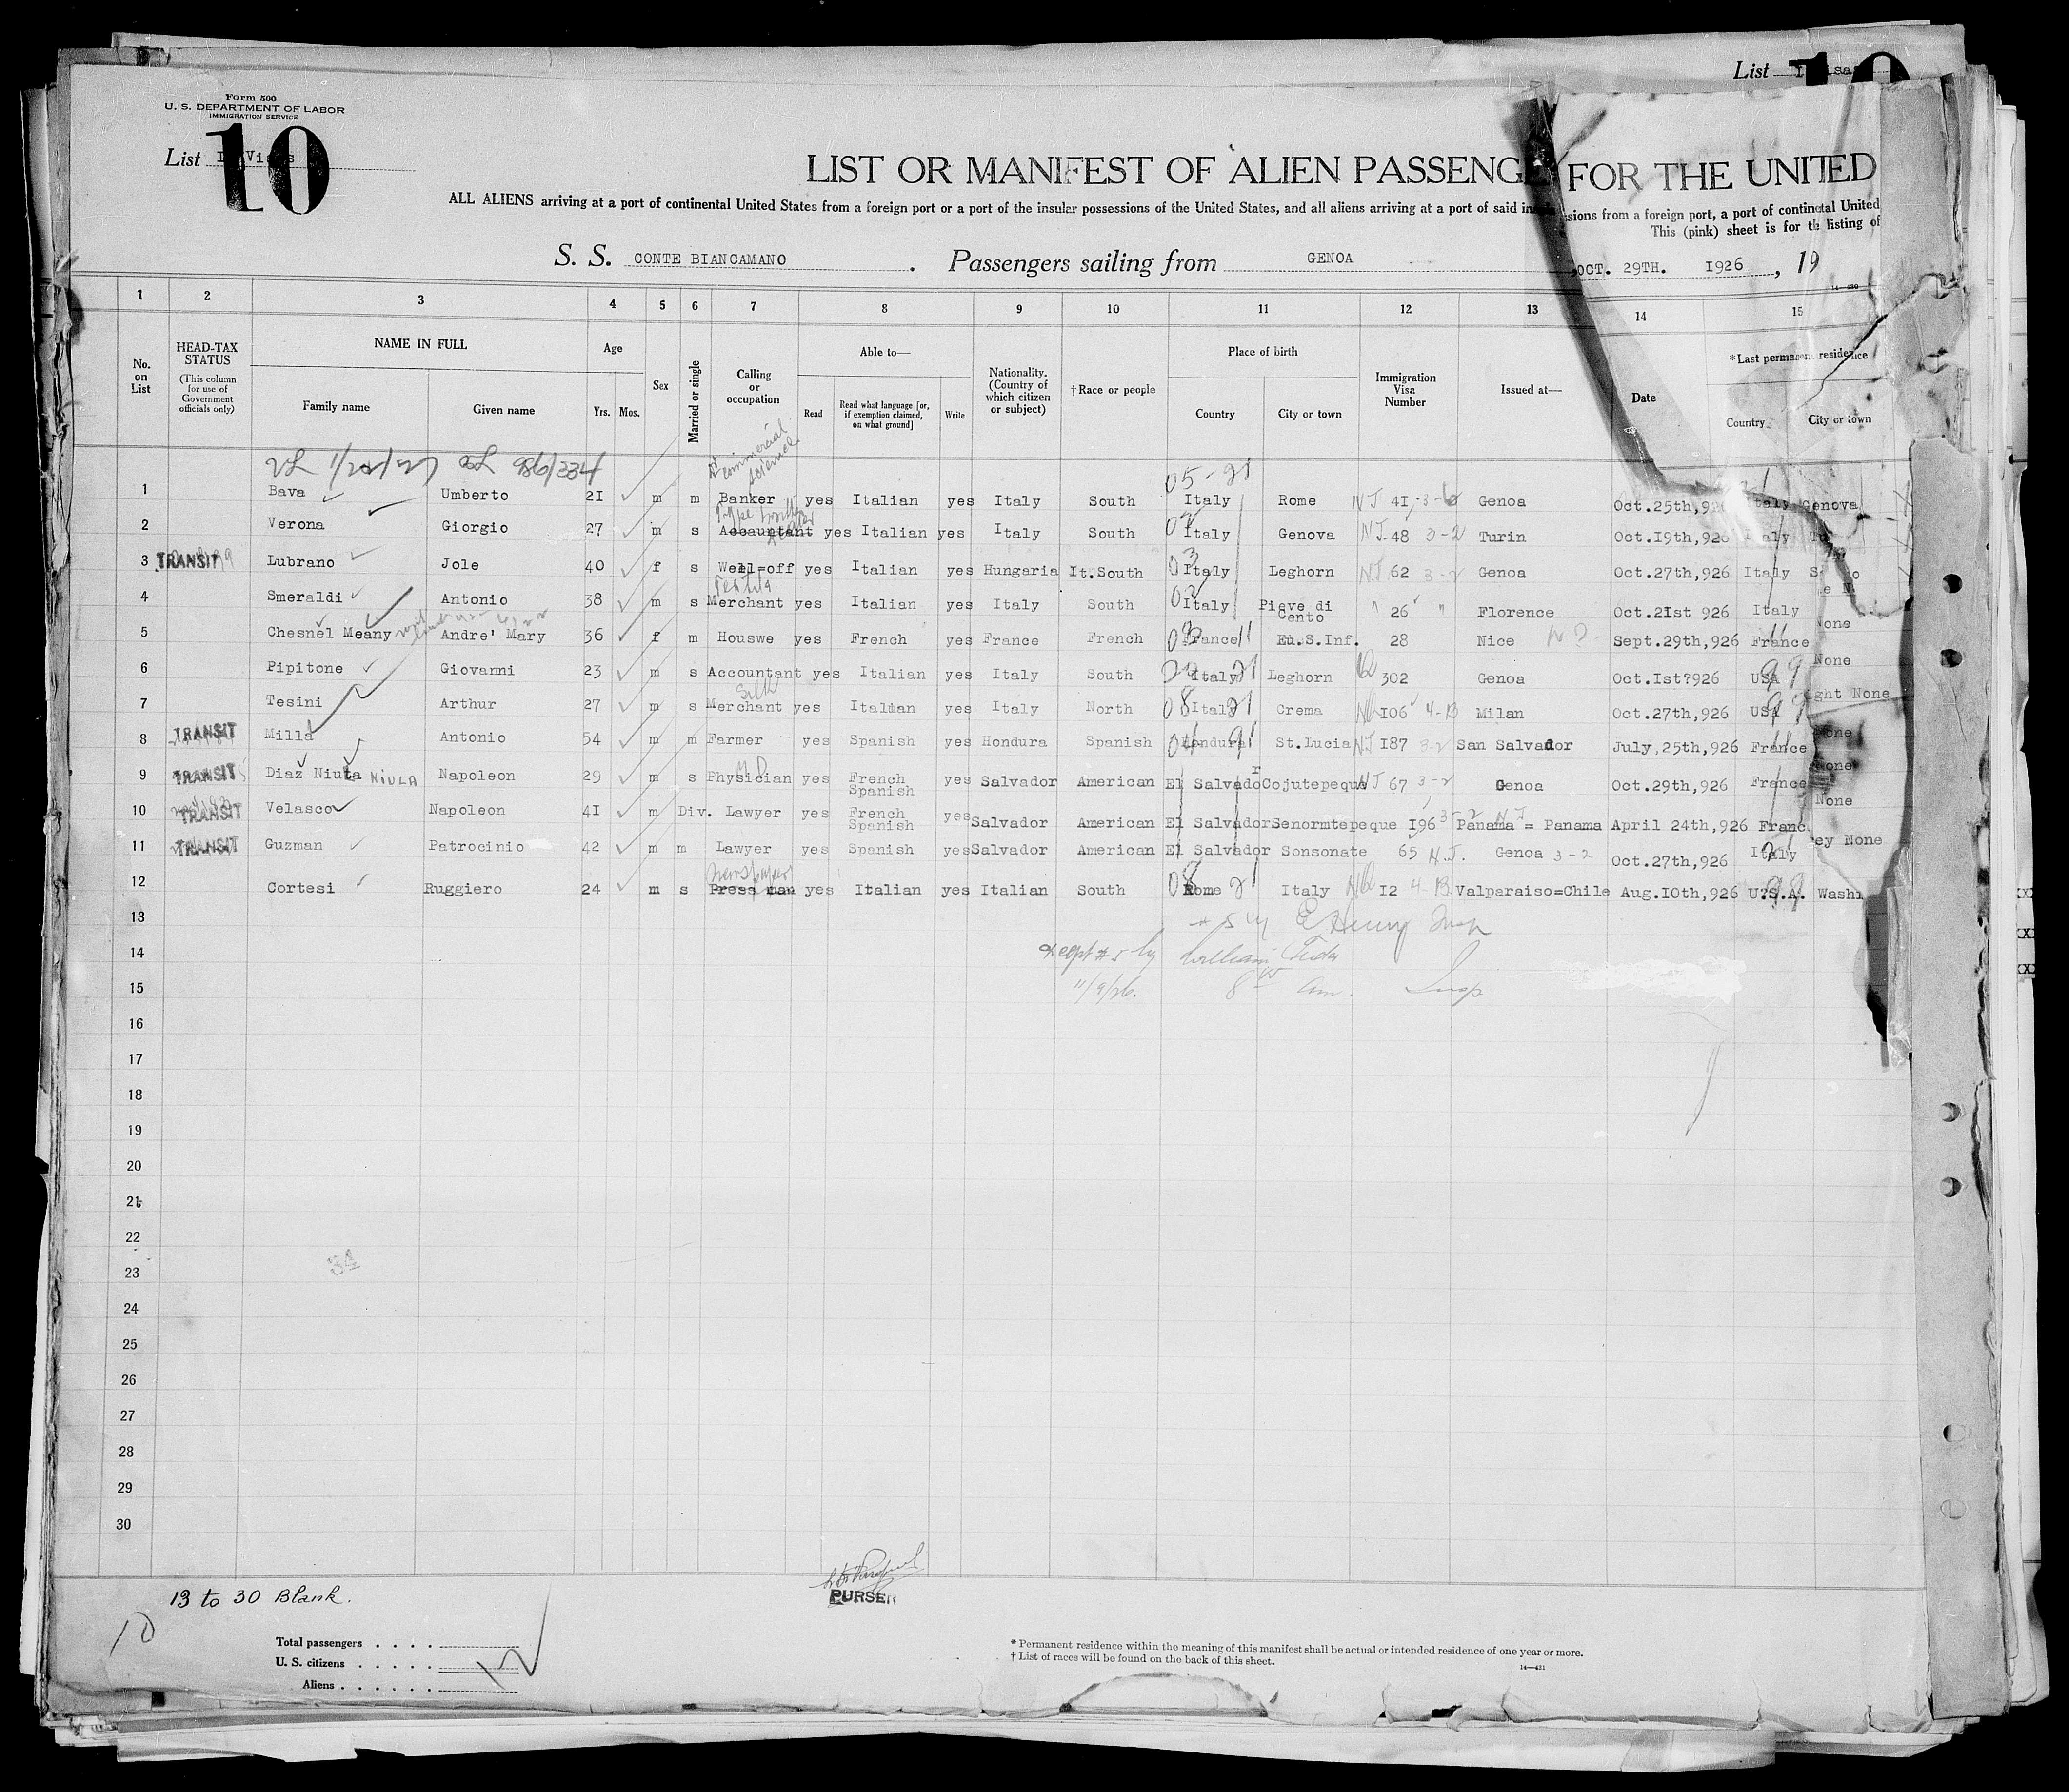 List I Visa
Form 500
U. S. DEPARTMENT OF LABOR
IMMIGRATION SERVICE
10
List I Visas
LIST OR MANIFEST OF ALIEN PASSENGE FOR THE UNITED
ALL ALIENS arriving at a port of continental United States from a foreign port or a port of the insular possessions of the United States, and all aliens arriving at a port of said in sions from a foreign port, a port of continetal United
This (pink) sheet is for th listing of
S. S. CONTE BIANCAMANO . Passengers sailing from GENOA , OCT. 29TH. 1926 , 19
14—430
1 2 3 4 5 6 7 8 9 10 11 12 13 14 15
No. on List
HEAD-TAX STATUS
(This column for use of Government officials only)
NAME IN FULL
Family name Given name
Age
Yrs. Mos.
Sex
Married or single
Calling or occupation
Able to—
Read
Read what language [or, if exemption claimed, on what ground]
Write
Nationality. (Country of which citizen or subject)
†Race or people
Place of birth
Country City or town
Immigration Visa Number
Issued at—
Date
*Last permanent residence
Country City or town
986/334
Commercial Science
05-21
1 Bava Umberto 21 m m Banker yes Italian yes Italy South Italy Rome NJ 41 3-6 Genoa Oct.25th,92 Italy Genova
2 Verona Giorgio 27 m s Accauntant yes Italian yes Italy South Italy Genova NJ 48 3-2 Turin Oct.I9th,926 Italy
3 TRANSIT Lubrano Jole 40 f s Well=off yes Italian yes Hungaria It.South 03 Italy Leghorn NJ 62 3-2 Genoa Oct.27th,926 Italy
4 Smeraldi Antonio 38 m s Merchant yes Italian yes Italy South Italy Pieve di Cento " 26 " Florence Oct.2Ist 926 Italy
5 Chesnel Meany Andre' Mary 36 f m Houswe yes French yes France French France 11 Eu.S.Inf. 28 Nice Sept.29th,926 France None
6 Pipitone Giovanni 23 m s Accountant yes Italian yes Italy South Italy 21 Leghorn 302 Genoa Oct.Ist?926 USA 99 None
Silk
7 Tesini Arthur 27 m s Merchant yes Italian yes Italy North 08 Italy 21 Crema I06 4-B Milan Oct.27th,926 USA 99 ght None
8 TRANSIT Milla Antonio 54 m m Farmer yes Spanish yes Hondura Spanish Hondura St.Lucia NJ I87 3-2 San Salvador July,25th,926 France None
M.D.
9 TRANSIT Diaz Niuta NIULA Napoleon 29 m s Physician yes French Spanish yes Salvador American El Salvador Cojutepeque NJ 67 3-2 Genoa Oct.29th,926 France None
10 TRANSIT Velasco Napoleon 4I m Div. Lawyer yes French Spanish yes Salvador American El Salvador Senormtepeque I96 3-2 NJ Panama = Panama April 24th,926 Franc None
11 TRANSIT Guzman Patrocinio 42 m m Lawyer yes Spanish yes Salvador American El Salvador Sonsonate 65 N.J. Genoa 3-2 Oct.27th,926 Italy ey None
Newspaper
12 Cortesi Ruggiero 24 m s Press man yes Italian yes Italian South 08 Rome 21 Italy I2 4-B Valparaiso=Chile Aug.I0th,926 U.S.A. 99 Washi
13 E Henry Insp
14 # 5 by William
15 11/9/26. 8 am. Insp
16
17
18
19
20
21
22
23
34
24
25
26
27
28
29
30
13 to 30 Blank.
PURSER
10
Total passengers . . . .
U. S. citizens . . . . . 12
Aliens . . . . . .
* Permanent residence within the meaning of this manifest shall be actual or intended residence of one year or more.
† List of races will be found on the back of this sheet.
14—431